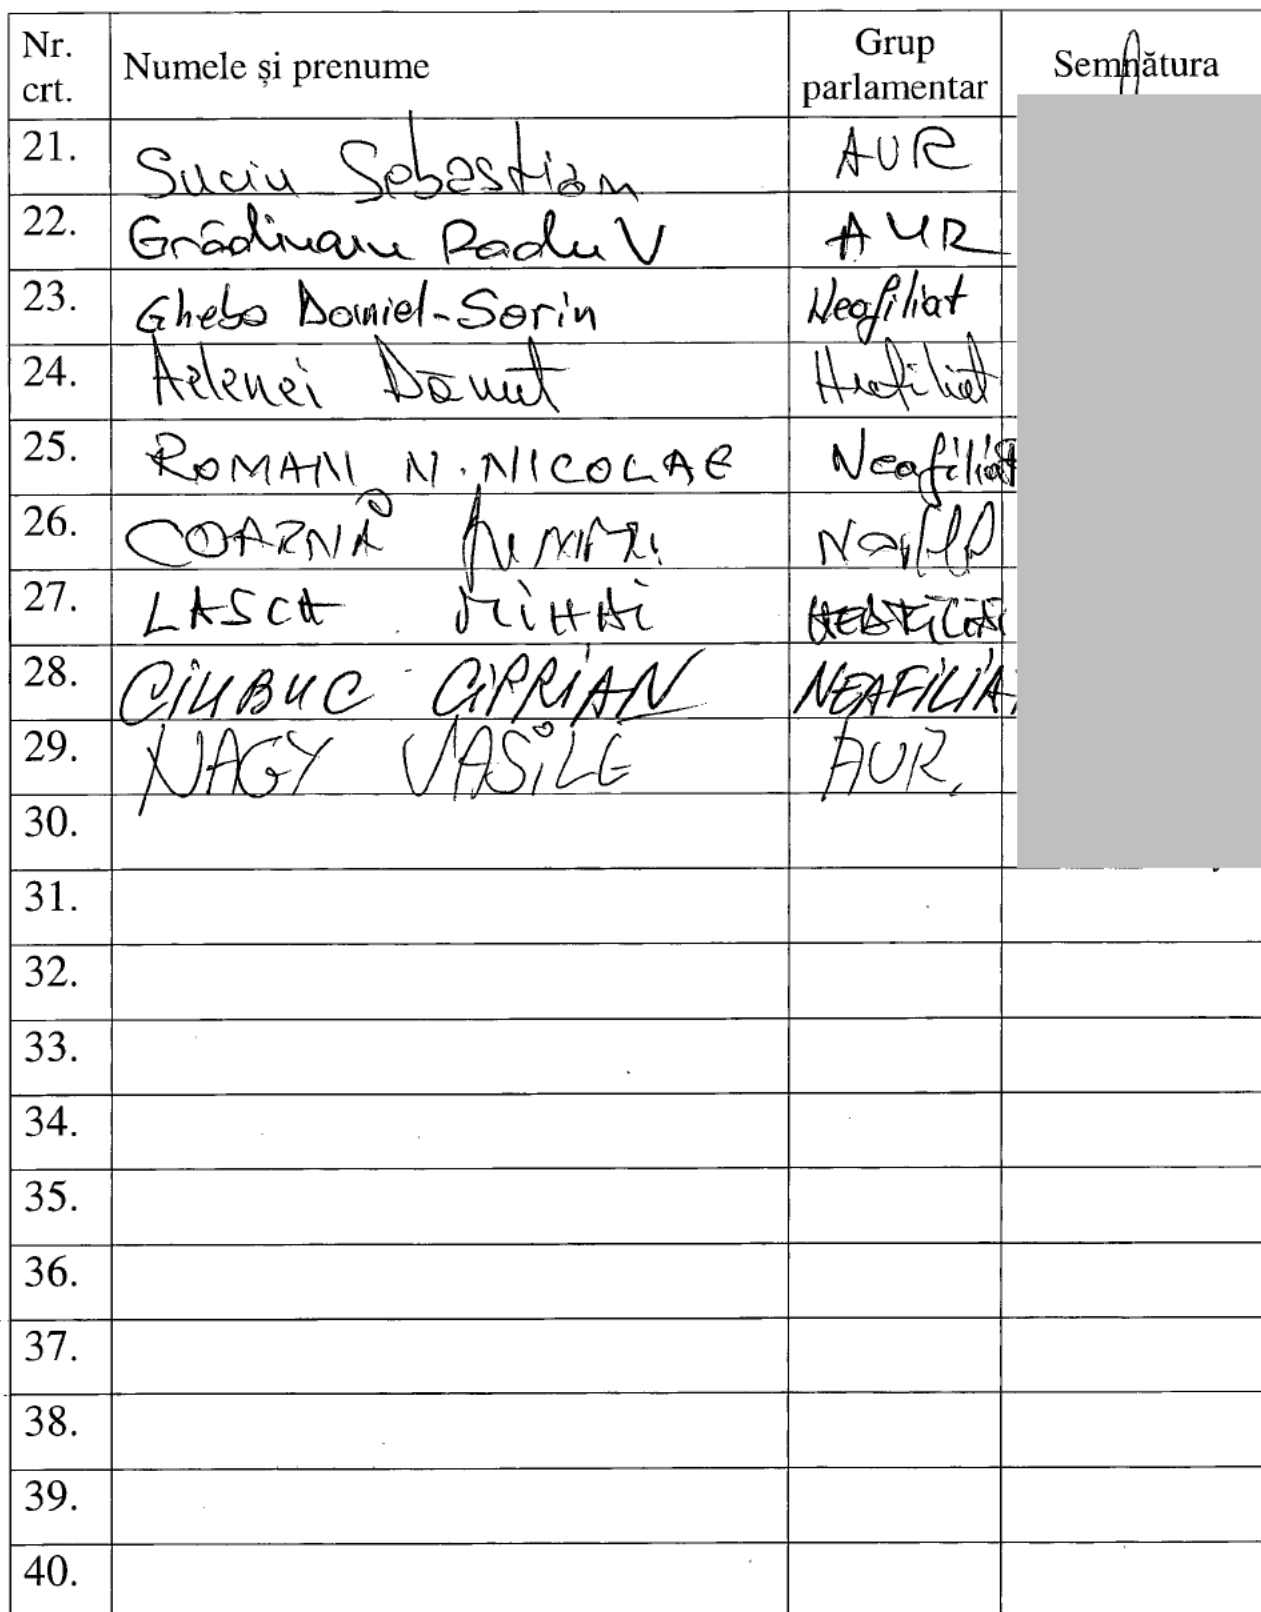 Nr. crt. Numele și prenume Grup parlamentar Semnătura
21. Suciu Sebastian AUR
22. Grădinaru Radu V AUR
23. Gheba Daniel-Sorin Neafiliat
24. Aelenei Dănuț Neafiliat
25. ROMAN N. NICOLAE Neafiliat
26. COARNĂ
27. LASCA MIHAI NEAFILIAT
28. CIUBUC CIPRIAN NEAFILIA
29. NAGY VASILE AUR.
30.
31.
32.
33.
34.
35.
36.
37.
38.
39.
40.